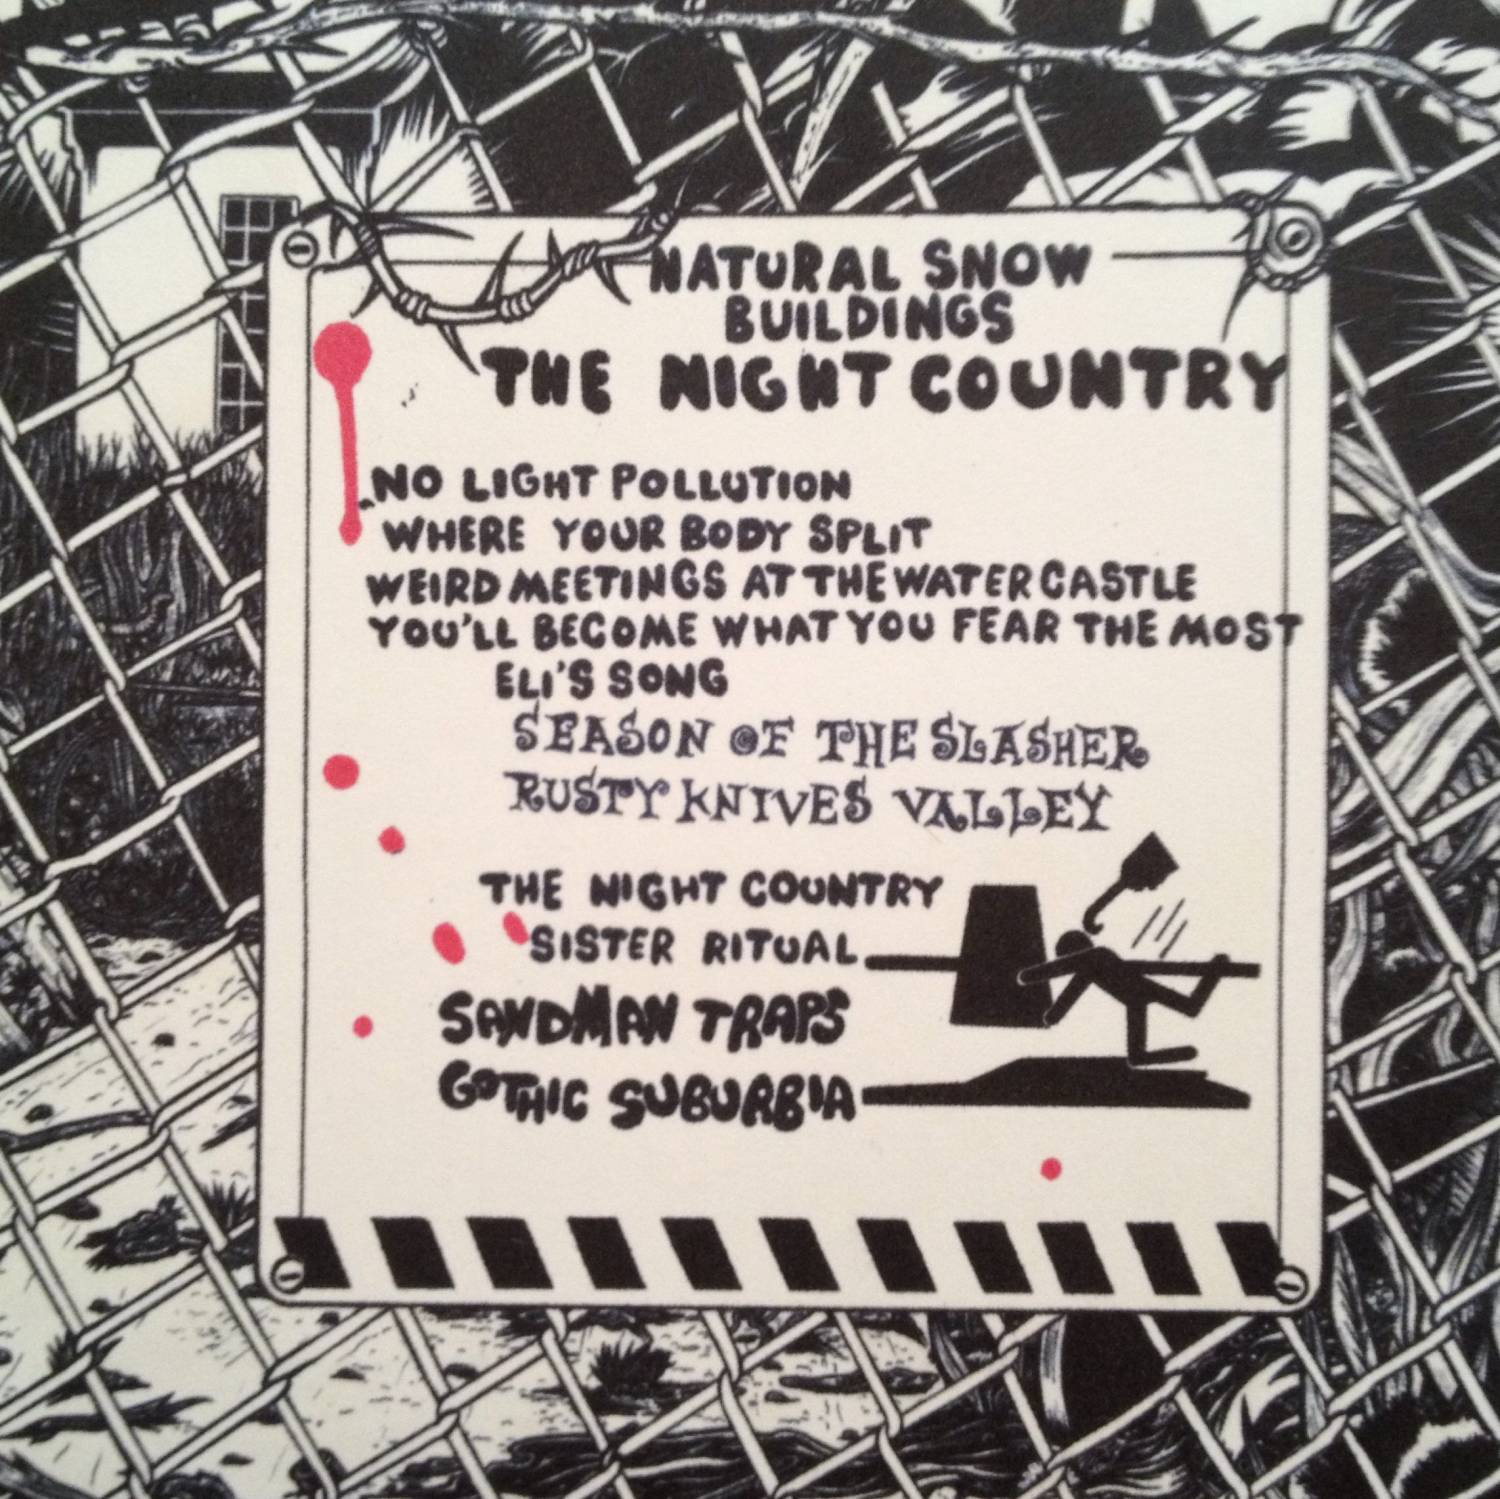 NATURAL SNOW
BUILDINGS
THE NIGHT COUNTRY
NO LIGHT POLLUTION
WHERE YOUR BODY SPLIT
WEIRD MEETINGS AT THE WATER CASTLE
YOU'LL BECOME WHAT YOU FEAR THE MOST
ELI'S SONG
SEASON OF THE SLASHER
RUSTY KNIVES VALLEY
THE NIGHT COUNTRY
SISTER RITUAL
SANDMAN TRAPS
GOTHIC SUBURBIA